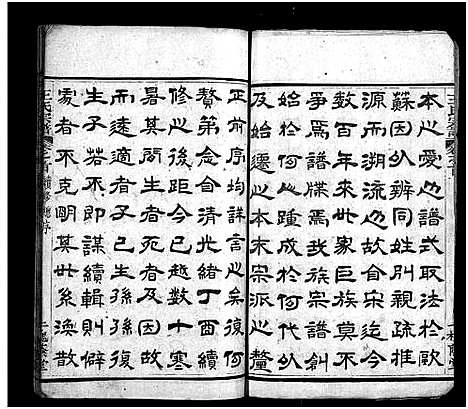 王氏宗譜
本之爰乃譜式取法於歐
蘇因以辨同姓別親疏推
源而溯流焉故自宋迄今
數百年來世家巨族莫不
爭焉譜牒焉想宗譜創
始於何人踵成於何代以
及始遷之本末宗派之釐
正前序均詳言之矣復何
贅第念自清光緒丁酉續
修之後距今已越數十寒
暑其間生者死者及因故
而遠適者若不生孫孫復
生子若不即謀續輯則僻
處者不克明其世系渙散
卷首 續修總序